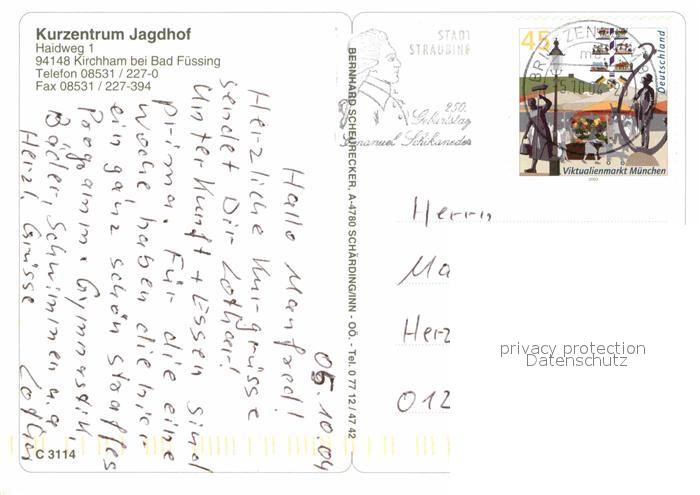 Kurzentrum Jagdhof
Haidweg 1
94148 Kirchham bei Bad Füssing
Telefon 08531 / 227-0
Fax 08531 / 227-394
05.10.04
Hallo Manfred!
Herzliche Kurgrüsse
sendet Dir Lothar!
Unterkunft + Essen sind
prima. Für die eine
Woche haben die hier
ein ganz schön straffes
Programm. Gymnastik
Bäder, Schwimmen u.a.
Herzl. Grüsse Lothar
C 3114
BERNHARD SCHEURECKER, A-4780 SCHÄRDING/INN - OÖ. - Tel. 0 77 12 / 47 42
STADT
STRAUBING
250.
Geburtstag
Emanuel Schikaneder
BRIEFZENTRUM
45
Deutschland
Viktualienmarkt München
2003
Herrn
Ma
Herz
012
privacy protection
Datenschutz